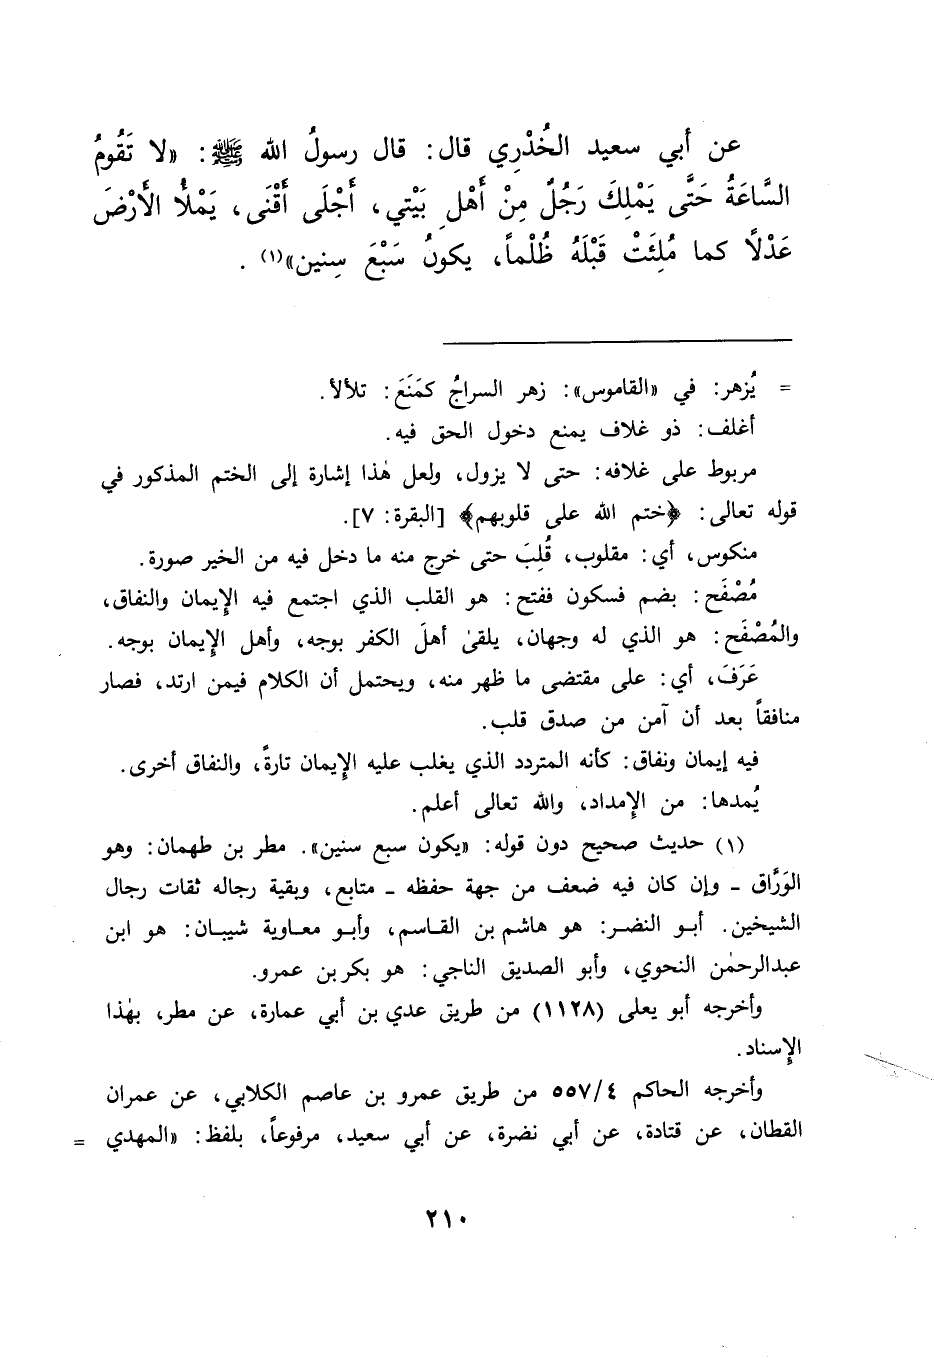 عن أبي سعيد الخُدْرِي قال: قال رسولُ الله ﷺ: «لا تَقُومُ
السَّاعَةُ حَتَّى يَمْلِكَ رَجُلٌ مِنْ أَهْلِ بَيْتي، أَجْلَى أَقْنَى، يَمْلأُ الأَرْضَ
عَدْلًا كما مُلِئَتْ قَبْلَهُ ظُلْماً، يكونُ سَبْعَ سِنين»(١) .
= يُزهر: في «القاموس»: زهر السراجُ كمَنَعَ: تلألأ.
أغلف: ذو غلاف يمنع دخول الحق فيه.
مربوط على غلافه: حتى لا يزول، ولعل هٰذا إشارة إلى الختم المذكور في
قوله تعالى: ﴿ختم الله على قلوبهم﴾ [البقرة: ٧].
منكوس، أي: مقلوب، قُلِبَ حتى خرج منه ما دخل فيه من الخير صورة.
مُصْفَح: بضم فسكون ففتح: هو القلب الذي اجتمع فيه الإيمان والنفاق،
والمُصْفَح: هو الذي له وجهان، يلقىٰ أهلَ الكفر بوجه، وأهل الإيمان بوجه.
عَرَفَ، أي: على مقتضى ما ظهر منه، ويحتمل أن الكلام فيمن ارتد، فصار
منافقاً بعد أن آمن من صدق قلب.
فيه إيمان ونفاق: كأنه المتردد الذي يغلب عليه الإيمان تارةً، والنفاق أخرى.
يُمدها: من الإمداد، والله تعالى أعلم.
(١) حديث صحيح دون قوله: «يكون سبع سنين». مطر بن طهمان: وهو
الوَرَّاق - وإن كان فيه ضعف من جهة حفظه - متابع، وبقية رجاله ثقات رجال
الشيخين. أبو النضر: هو هاشم بن القاسم، وأبو معاوية شيبان: هو ابن
عبدالرحمٰن النحوي، وأبو الصديق الناجي: هو بكر بن عمرو.
وأخرجه أبو يعلى (١١٢٨) من طريق عدي بن أبي عمارة، عن مطر، بهٰذا
الإسناد.
وأخرجه الحاكم ٥٥٧/٤ من طريق عمرو بن عاصم الكلابي، عن عمران
القطان، عن قتادة، عن أبي نضرة، عن أبي سعيد، مرفوعاً، بلفظ: «المهدي =
٢١٠